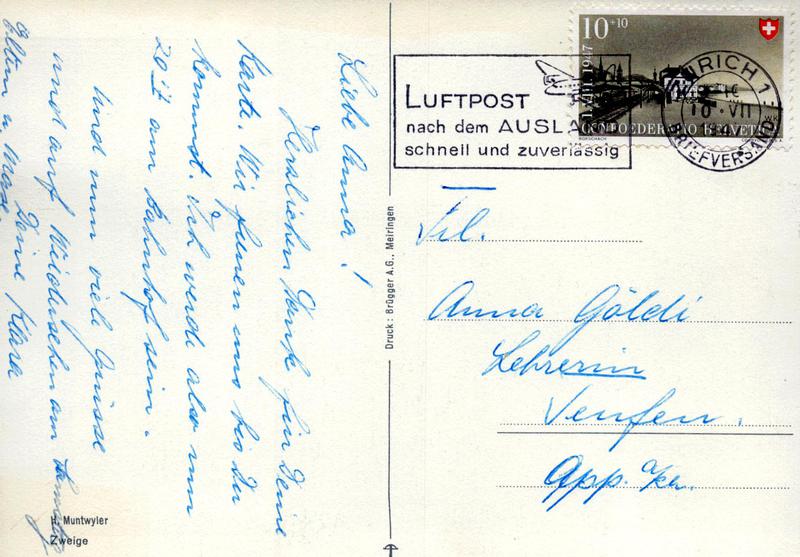 Liebe Anna!
Herzlichen Dank für Deine
Karte. Wir freuen uns bis Du
kommst. Ich werde also um
20 am Bahnhof sein.
Und nun viele Grüsse
und auf Wiedersehen am Samstag
Deine Klara
Eltern u.
H. Muntwyler
Zweige
Druck: Brügger A.G., Meiringen
LUFTPOST
nach dem AUSLA
schnell und zuverlässig
10+10
1.VIII.1947
CONFOEDERATIO HELVETICA
RORSCHACH
ZÜRICH 1
10.VII
194
BRIEFVERSAND
Frl.
Anna Göldi
Lehrerin
Teufen.
App. a/Rh.